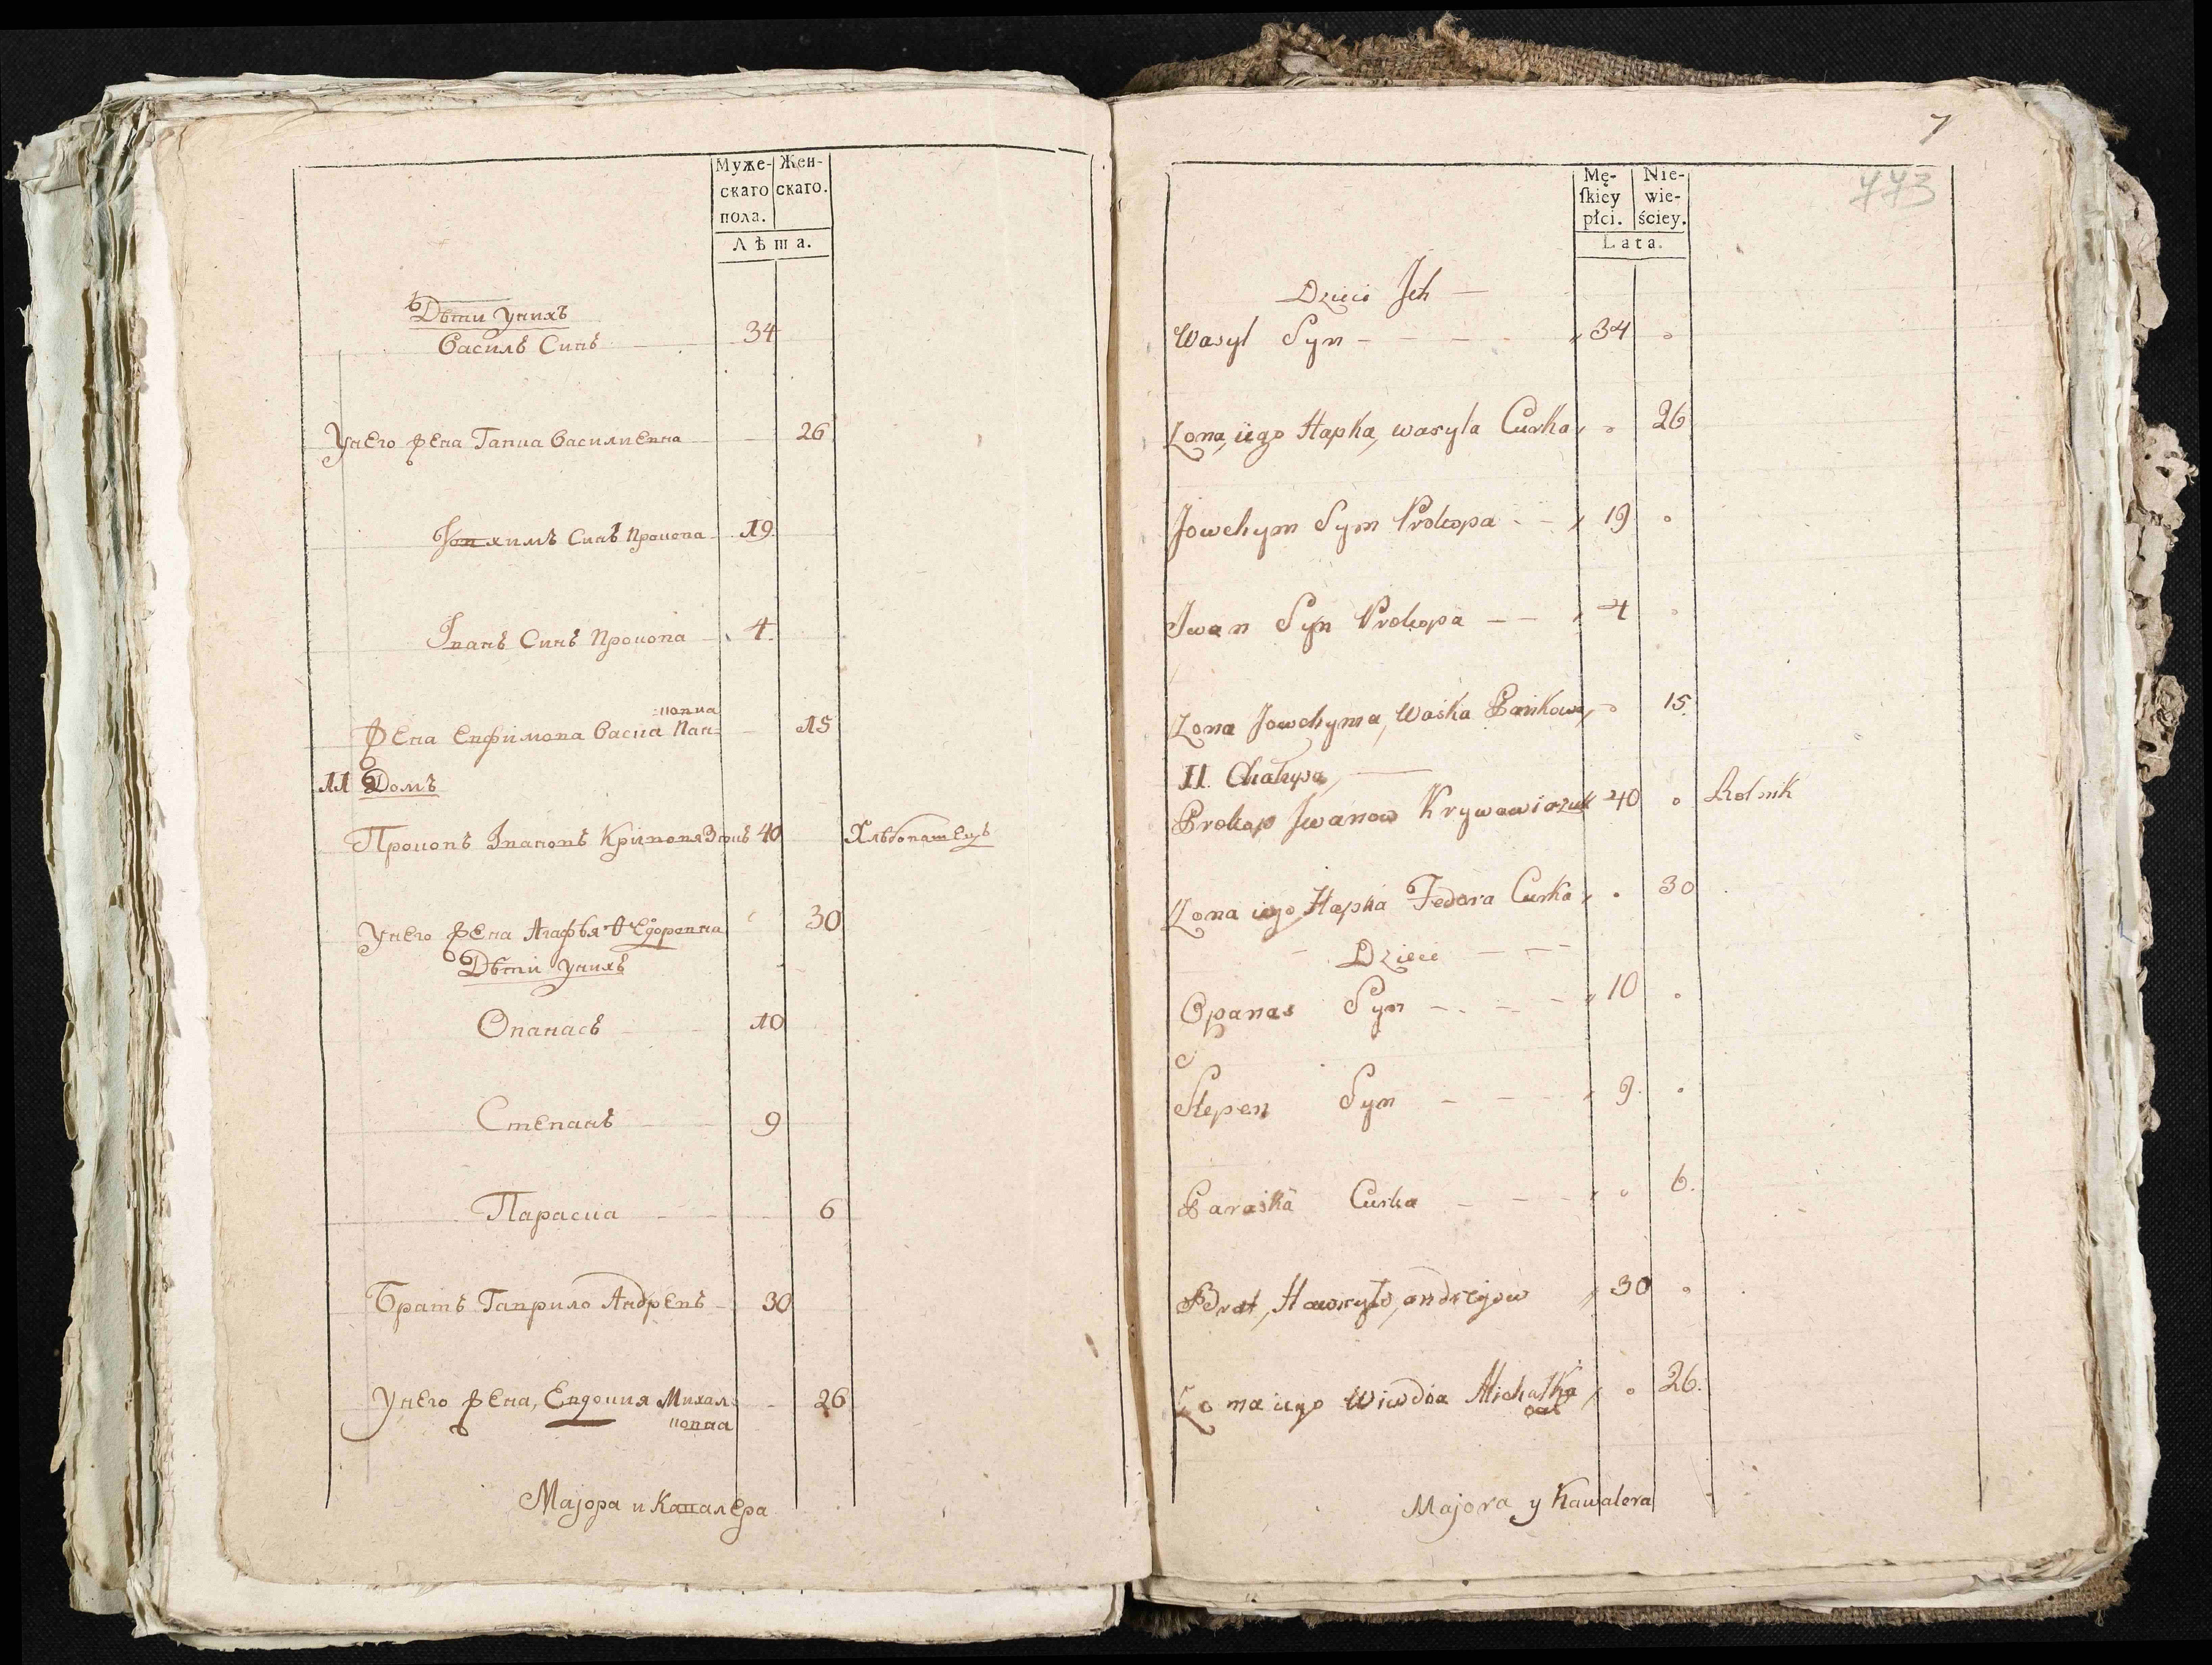 Муже-
скаго
пола.
Жен-
скаго.
Лѣта.
Дѣти унихъ
Василь Синъ 34
Унего жена Гапка Василиевна 26
Іовхимъ Синъ Прокопа 19
Іванъ Синъ Прокопа 4.
Жена Евфимова Васка Пан=
=кова 15
11 Домъ
Прокопъ Івановъ Кривовязюкъ 40 Хлѣбопатецъ
Унего жена Агафья Ѳедоровна 30
Дѣти унихъ
Опанасъ 10
Степанъ 9
Параска 6
Братъ Гаврило Андревъ 30
Унего жена, Евдокия Михал=
ковна 26
Маjора и Кавалера
7
773
Mę-
ſkiey
płci.
Nie-
wie-
ściey.
Lata.
Dzieci Jch
Wasyl Syn 34
Zona, iego Hapka, wasyla Curka 26
Jowchym Syn Prokopa 19
Jwan Syn Prokopa 4
Zona Jowchyma, Waska Pankowa, 15.
11. Chałupa
Prokop Jwanow Krywowiazuk 40 Rolnik
Zona iego Hapka Fedora Curka 30
Dzieci
Opanas Syn 10
Stepen Syn 9.
Paraska Curka 6.
Brat, Hawryło, andrejow 30
Zona iego Wiwdia Michałka 26.
Majora y Kawalera